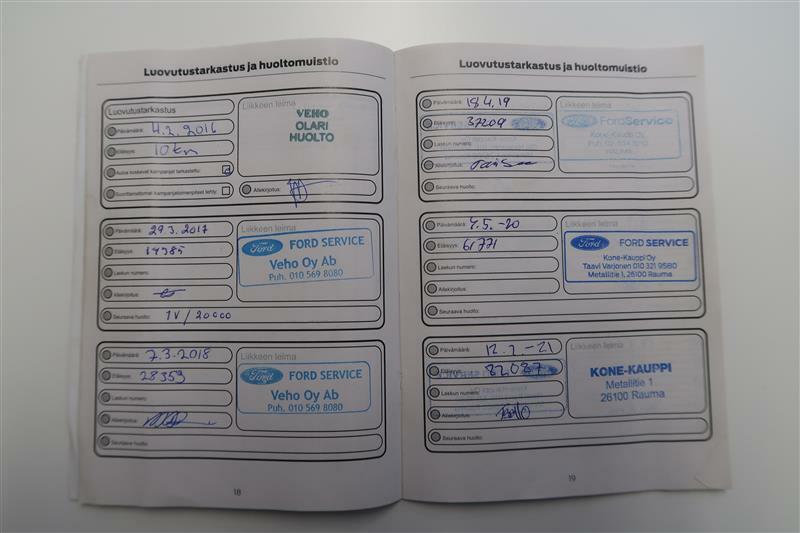 Luovutustarkastus ja huoltomuistio
Luovutustarkastus
Päivämäärä: 4.2.2016
Etäisyys: 10 km
Autoa koskevat kampanjat tarkastettu:
Suorittamattomat kampanjatoimenpiteet tehty:
Liikkeen leima
VEHO
OLARI
HUOLTO
Allekirjoitus:
Päivämäärä: 29.3.2017
Etäisyys: 14385
Laskun numero:
Allekirjoitus:
Seuraava huolto: 1V/20000
Liikkeen leima
Ford FORD SERVICE
Veho Oy Ab
Puh. 010 569 8080
Päivämäärä: 7.3.2018
Etäisyys: 28359
Laskun numero:
Allekirjoitus:
Seuraava huolto:
Liikkeen leima
Ford FORD SERVICE
Veho Oy Ab
Puh. 010 569 8080
18
Luovutustarkastus ja huoltomuistio
Päivämäärä: 18.4.19
Etäisyys: 37209
Laskun numero:
Allekirjoitus:
Seuraava huolto:
Liikkeen leima
Ford FordService
Kone-Kauppi Oy
Päivämäärä: 4.5.-20
Etäisyys: 61771
Laskun numero:
Allekirjoitus:
Seuraava huolto:
Liikkeen leima
Ford FORD SERVICE
Kone-Kauppi Oy
Taavi Varjonen 010 321 9580
Metallitie 1, 26100 Rauma
Päivämäärä: 12.7.-21
Etäisyys: 82087
Laskun numero:
Allekirjoitus:
Seuraava huolto:
Liikkeen leima
KONE-KAUPPI
Metallitie 1
26100 Rauma
19